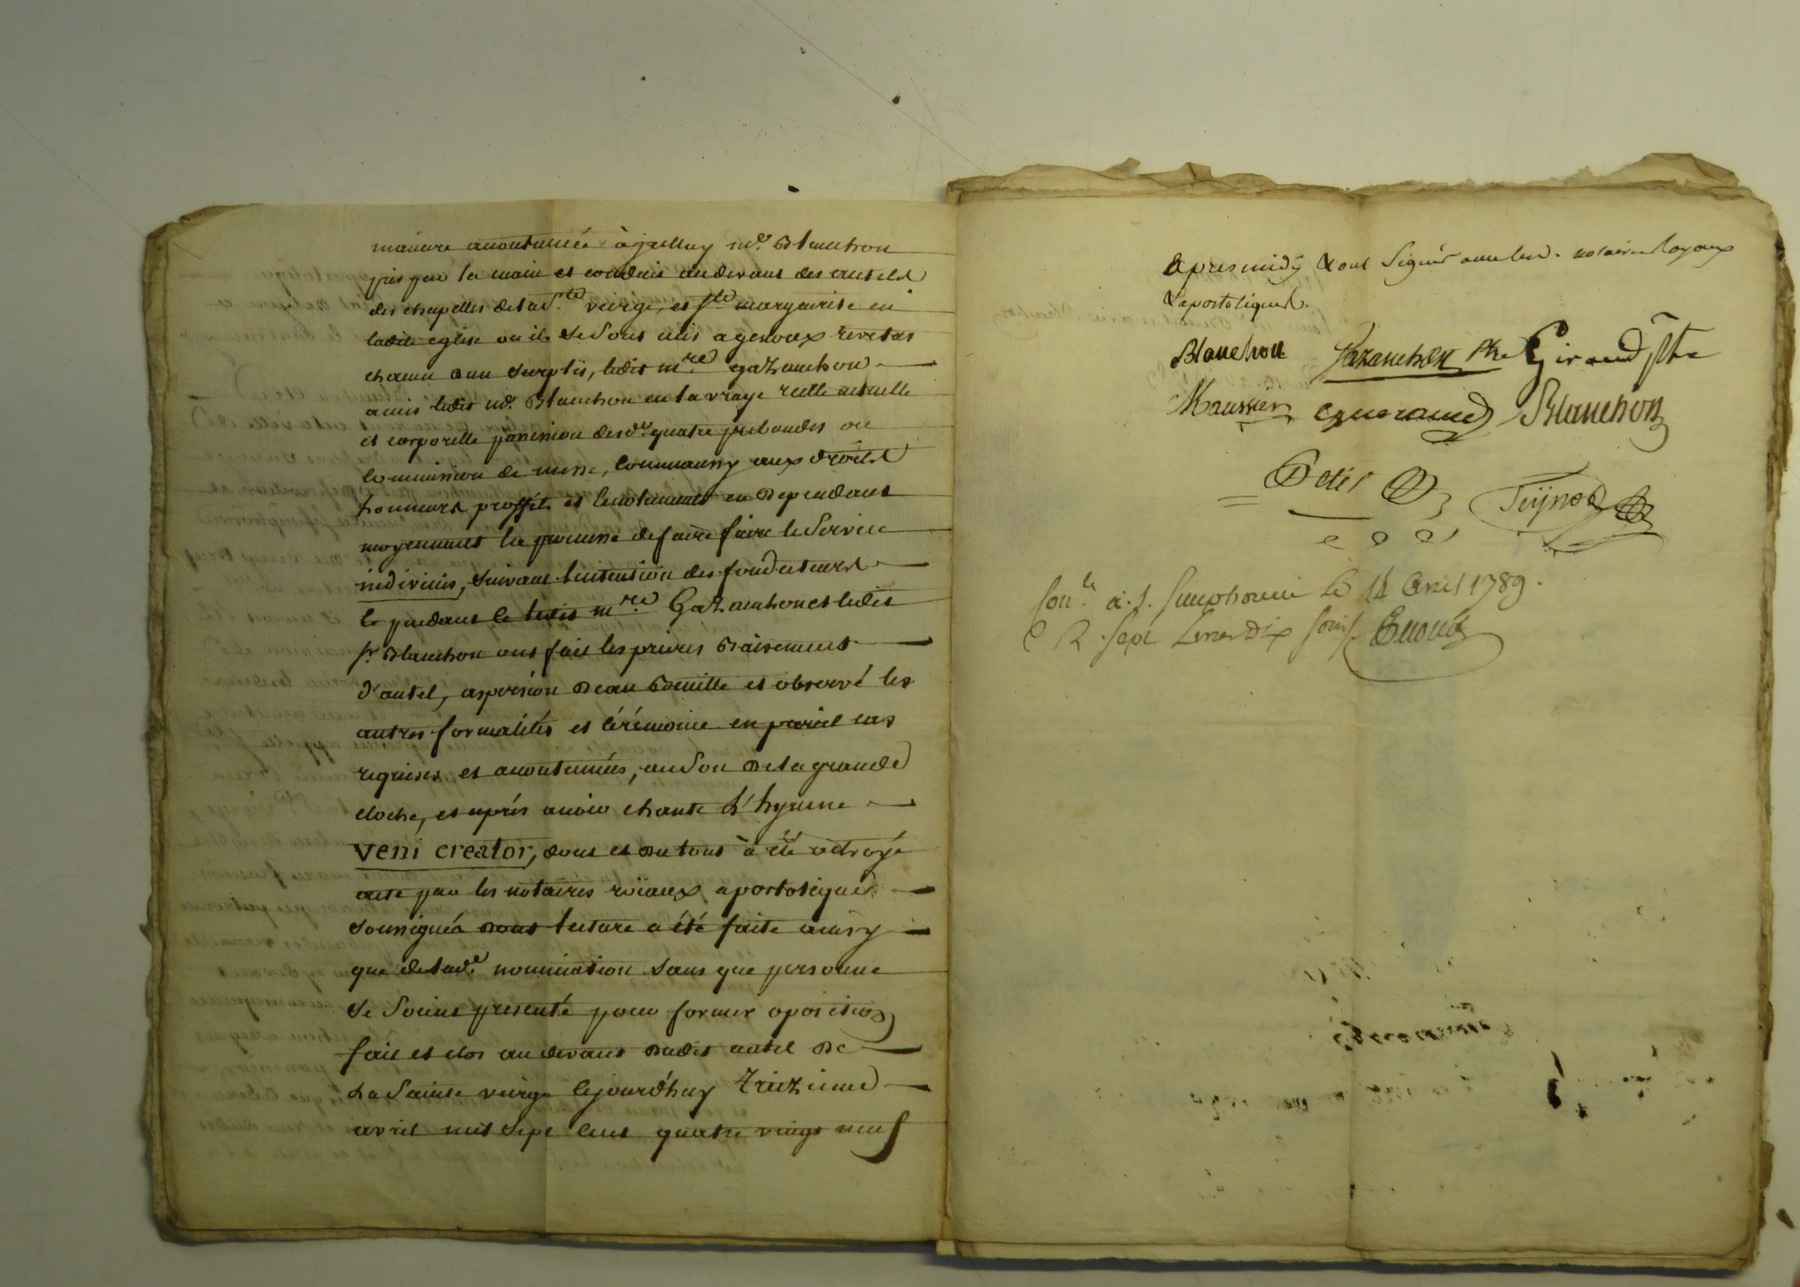 maniere acoutumée à jcelluy md. Blanchon
pris par la main et conduit audevant des autels
des chapelles de la Ste. vierge, et Ste margueritte en
ladite eglise ou ils se sont mis a genoux revetus
chacun d'un surplis, ledit mre. Gazanchon
a mis ledit md. Blanchon en la vraye reelle actuelle
et corporelle possession desd. quatre prebandes ou
commission de messe, communs aux droits
honneurs proffits et emoluments en Dependants
moyennant la promesse de faire faire le Service
indivinis, suivant lintention des fondateurs
Ce pendant le ledit mre. Gazanchon et ledit
sr. Blanchon ont fait les prieres Baisement
d'autel, aspersion Deau Benitte et observé les
autres formalités et cérémonie en pareil cas
requises et acoutumées, au Son De la grande
cloche, et après avoir chanté L'hymne
veni creator, dont et du tout à été octroyé
acte par les notaires roïaux apostolique
soussignés dont lecture a été faite ainsy
que de lade. nomination sans que personne
se soint presenté pour former oposition
fait et clos au devant dudit autel De
La Sainte vierge Cejourd'huy treizieme
avril mil sept cent quatre vingt neuf
apres midy & ont Signés avec les d. notaires Royaux
& apostoliques.
Blanchon Gazanchon Ptre Giraud ptre
Maussier Blanchon
Peynot
Con.le à S. Simphorien le 14 Avril 1789.
R. Sept Livres Dix sous